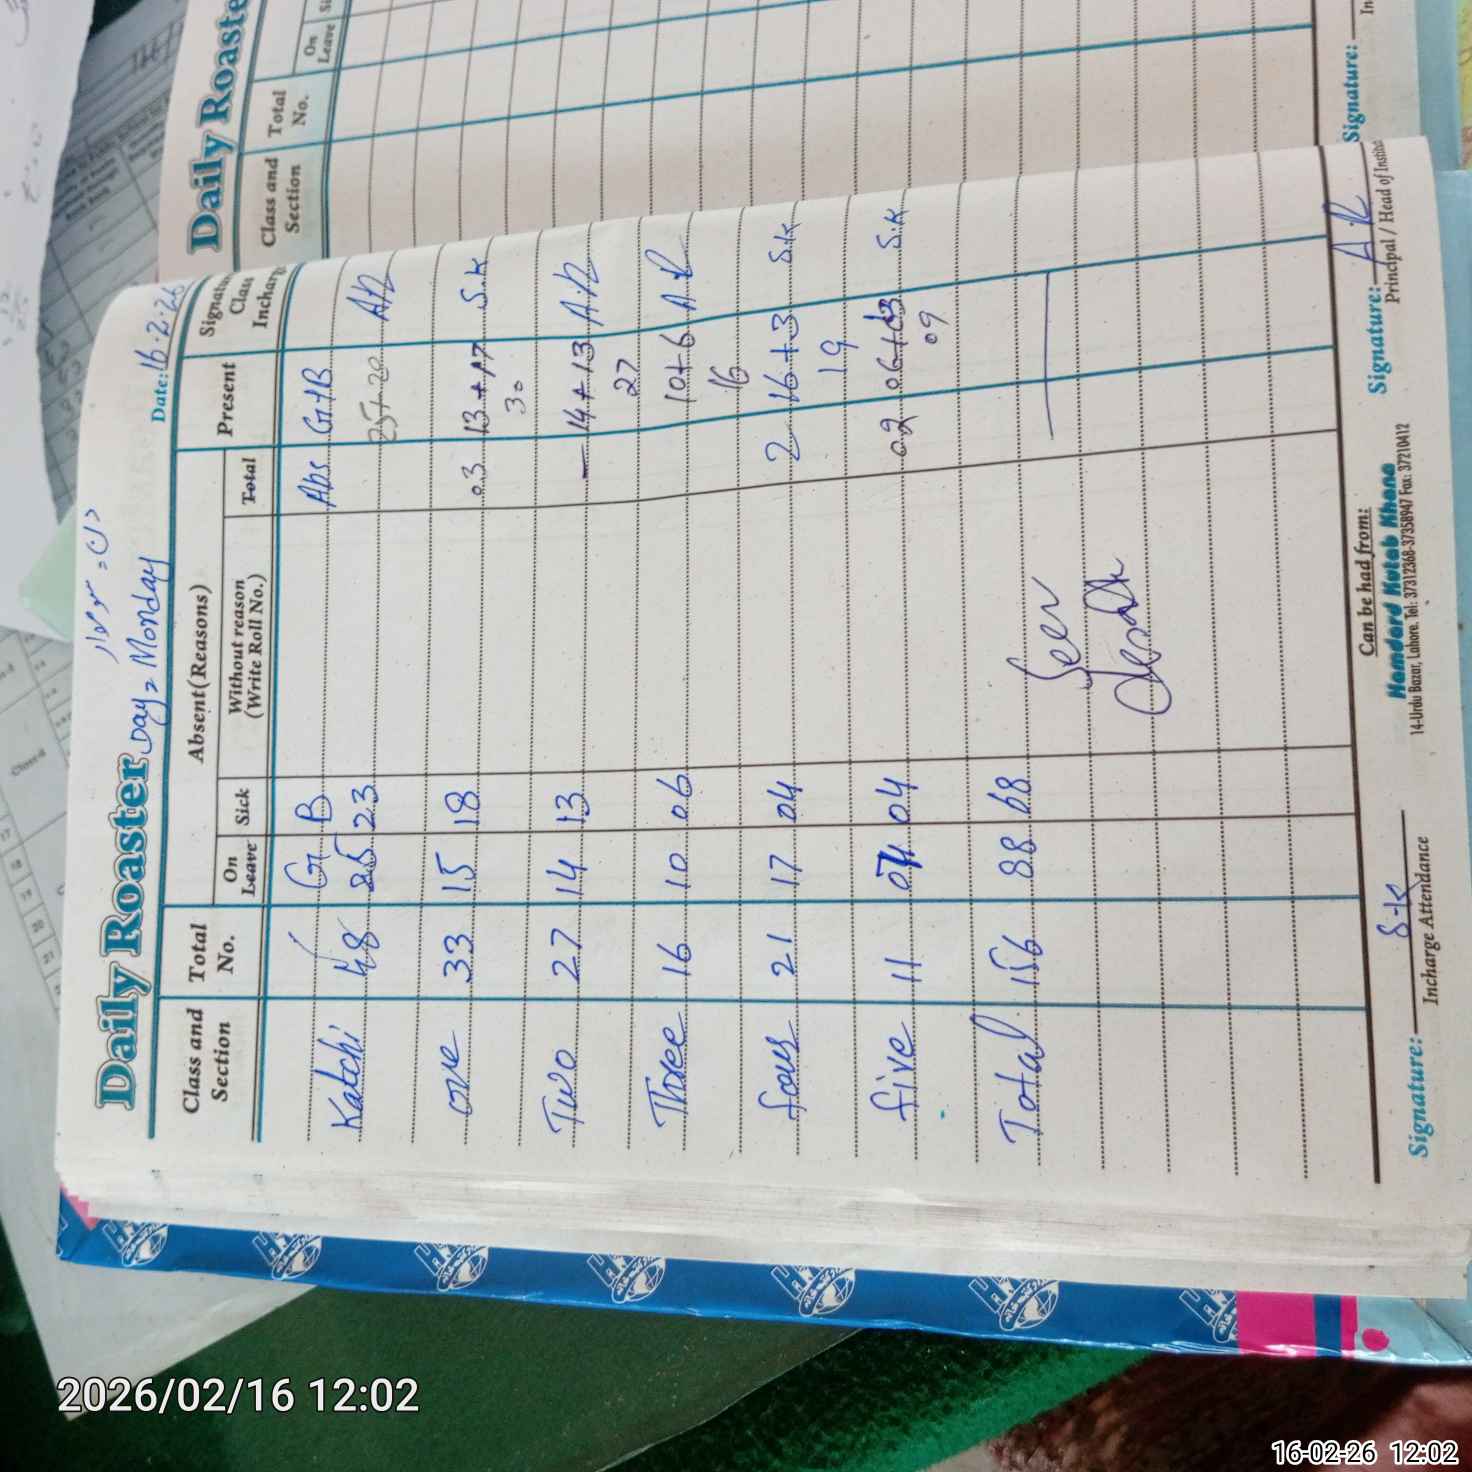 Day = Monday
Daily Roaster Date: 16.2.26
Class and Section Total No. Absent (Reasons) Present Signature Class Incharge
On Leave Sick Without reason (Write Roll No.) Total
G B Abs G+B
Katchi 48 25 23 25+20 A.R
one 33 15 18 03 13+17 S.K
30
Two 27 14 13 — 14+13 A.R
27
Three 16 10 06 10+6 A.R
16
four 21 17 04 2 16+3 S.K
19
five 11 07 04 02 06+03 S.K
09
Total 156 88 68 —
Seen
Signature: S-K Can be had from: Signature: A.R
Incharge Attendance Hamdard Kutab Khana Principal / Head of Institut
14-Urdu Bazar, Lahore. Tel: 37312368-37358947 Fax: 37210412
Daily Roaste
Class and Section Total No. On Leave Si
Signature:
In
2026/02/16 12:02
16-02-26 12:02